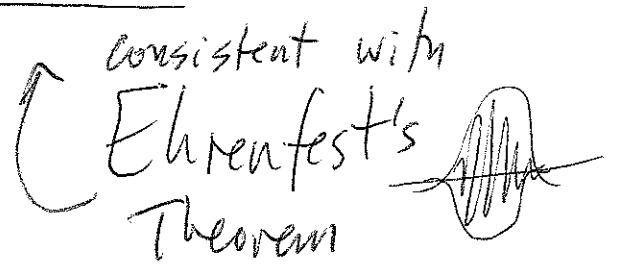 consistent with
Ehrenfest's
Theorem